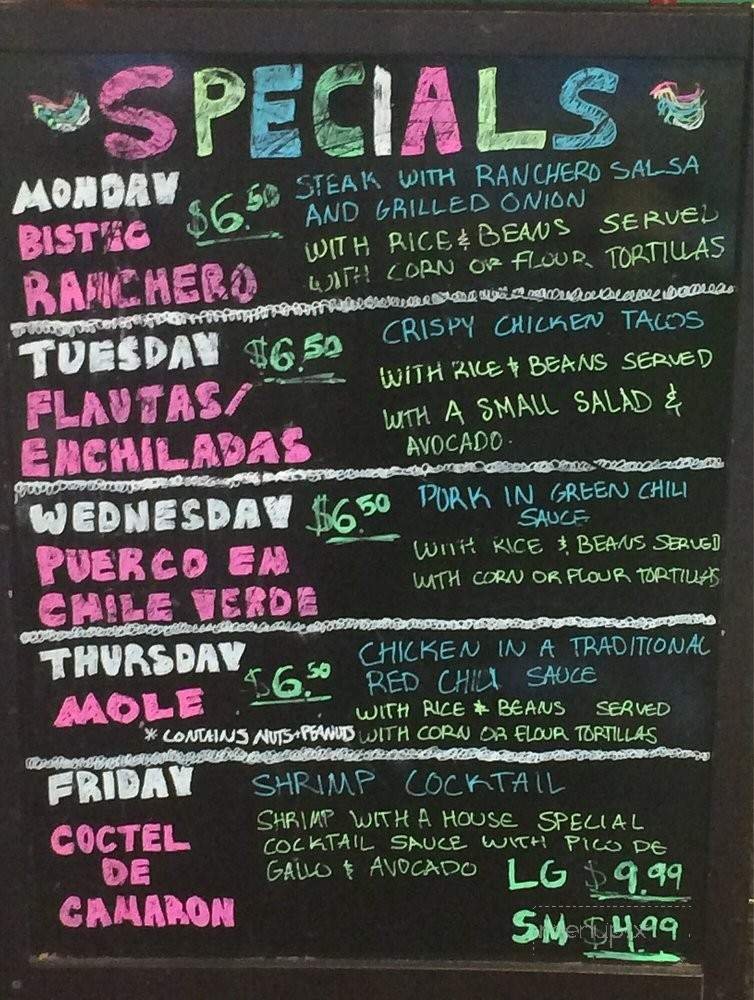 SPECIALS
MONDAY $6.50 STEAK WITH RANCHERO SALSA
AND GRILLED ONION
BISTEC
RANCHERO
WITH RICE & BEANS SERVED
WITH CORN OR FLOUR TORTILLAS
TUESDAY $6.50 CRISPY CHICKEN TACOS
FLAUTAS/
ENCHILADAS
WITH RICE & BEANS SERVED
WITH A SMALL SALAD &
AVOCADO.
WEDNESDAY $6.50 PORK IN GREEN CHILI
SAUCE
PUERCO EN
CHILE VERDE
WITH RICE & BEANS SERVED
WITH CORN OR FLOUR TORTILLAS
THURSDAY $6.50 CHICKEN IN A TRADITIONAL
RED CHILI SAUCE
MOLE
* CONTAINS NUTS+PEANUTS
WITH RICE & BEANS SERVED
WITH CORN OR FLOUR TORTILLAS
FRIDAY SHRIMP COCKTAIL
COCTEL
DE
CAMARON
SHRIMP WITH A HOUSE SPECIAL
COCKTAIL SAUCE WITH PICO DE
GALLO & AVOCADO
LG $9.99
SM $4.99
menupix